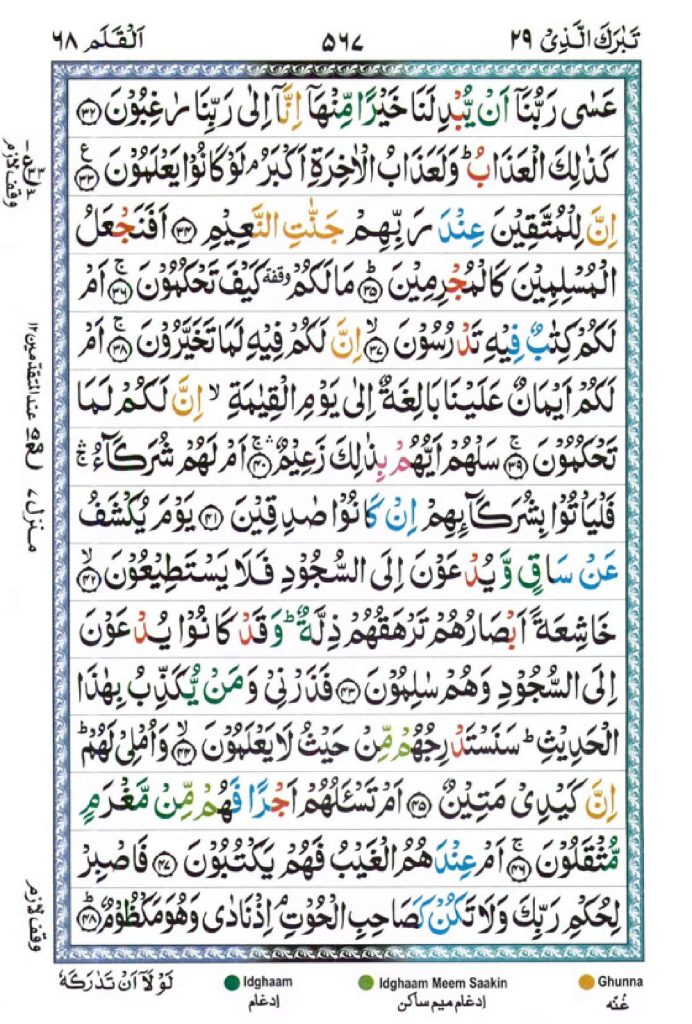 تَبٰرَكَ الَّذِىْ ٢٩
٥٦٧
اَلْقَلَم ٦٨
عَسٰى رَبُّنَاۤ اَنْ يُّبْدِلَنَا خَيْرًا مِّنْهَاۤ اِنَّاۤ اِلٰى رَبِّنَا رٰغِبُوْنَ ﴿٣٢﴾
كَذٰلِكَ الْعَذَابُ ؕ وَلَعَذَابُ الْاٰخِرَةِ اَكْبَرُ ۘ لَوْ كَانُوْا يَعْلَمُوْنَ ﴿٣٣﴾ ع
اِنَّ لِلْمُتَّقِيْنَ عِنْدَ رَبِّهِمْ جَنّٰتِ النَّعِيْمِ ﴿٣٤﴾ اَفَنَجْعَلُ
الْمُسْلِمِيْنَ كَالْمُجْرِمِيْنَ ؕ ﴿٣٥﴾ مَا لَكُمْ وقفة كَيْفَ تَحْكُمُوْنَ ۚ ﴿٣٦﴾ اَمْ
لَكُمْ كِتٰبٌ فِيْهِ تَدْرُسُوْنَ ۙ ﴿٣٧﴾ اِنَّ لَكُمْ فِيْهِ لَمَا تَخَيَّرُوْنَ ۚ ﴿٣٨﴾ اَمْ
لَكُمْ اَيْمَانٌ عَلَيْنَا بَالِغَةٌ اِلٰى يَوْمِ الْقِيٰمَةِ ۙ اِنَّ لَكُمْ لَمَا
تَحْكُمُوْنَ ۚ ﴿٣٩﴾ سَلْهُمْ اَيُّهُمْ بِذٰلِكَ زَعِيْمٌ ۛۚ ﴿٤٠﴾ اَمْ لَهُمْ شُرَكَآءُ ۛۚ
فَلْيَاْتُوْا بِشُرَكَآئِهِمْ اِنْ كَانُوْا صٰدِقِيْنَ ﴿٤١﴾ يَوْمَ يُكْشَفُ
عَنْ سَاقٍ وَّيُدْعَوْنَ اِلَى السُّجُوْدِ فَلَا يَسْتَطِيْعُوْنَ ۙ ﴿٤٢﴾
خَاشِعَةً اَبْصَارُهُمْ تَرْهَقُهُمْ ذِلَّةٌ ؕ وَقَدْ كَانُوْا يُدْعَوْنَ
اِلَى السُّجُوْدِ وَهُمْ سٰلِمُوْنَ ﴿٤٣﴾ فَذَرْنِىْ وَمَنْ يُّكَذِّبُ بِهٰذَا
الْحَدِيْثِ ؕ سَنَسْتَدْرِجُهُمْ مِّنْ حَيْثُ لَا يَعْلَمُوْنَ ۙ ﴿٤٤﴾ وَاُمْلِىْ لَهُمْ ؕ
اِنَّ كَيْدِىْ مَتِيْنٌ ﴿٤٥﴾ اَمْ تَسْـَٔلُهُمْ اَجْرًا فَهُمْ مِّنْ مَّغْرَمٍ
مُّثْقَلُوْنَ ۚ ﴿٤٦﴾ اَمْ عِنْدَهُمُ الْغَيْبُ فَهُمْ يَكْتُبُوْنَ ﴿٤٧﴾ فَاصْبِرْ
لِحُكْمِ رَبِّكَ وَلَا تَكُنْ كَصَاحِبِ الْحُوْتِ ۘ اِذْ نَادٰى وَهُوَ مَكْظُوْمٌ ؕ ﴿٤٨﴾
وقف لازم
عند المتقدمين ١٢
منزل ٧
وقف لازم
لَوْلَاۤ اَنْ تَدٰرَكَهٗ
Idghaam
ادغام
Idghaam Meem Saakin
ادغام میم ساکن
Ghunna
غُنّه